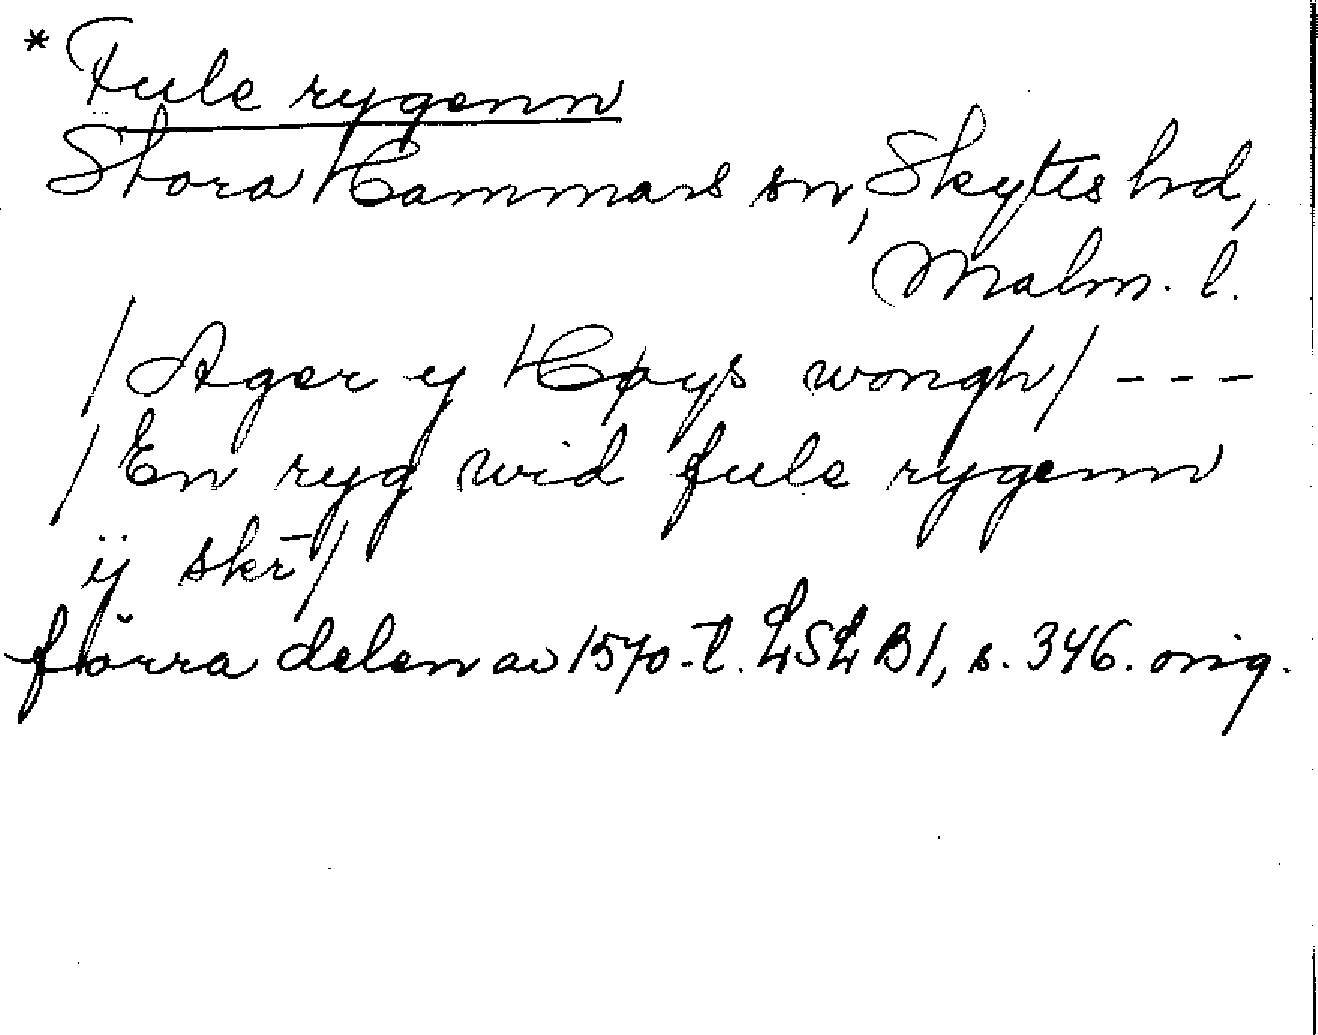 * Fule rygenn
Stora Hammars sn, Skytts hd,
Malm. l.
/Ager y Høys wongh/ - - -
/En ryg wid fule rygenn
ÿ skr̄/
förra delen av 1570-t. LSL B1, s. 346. orig.